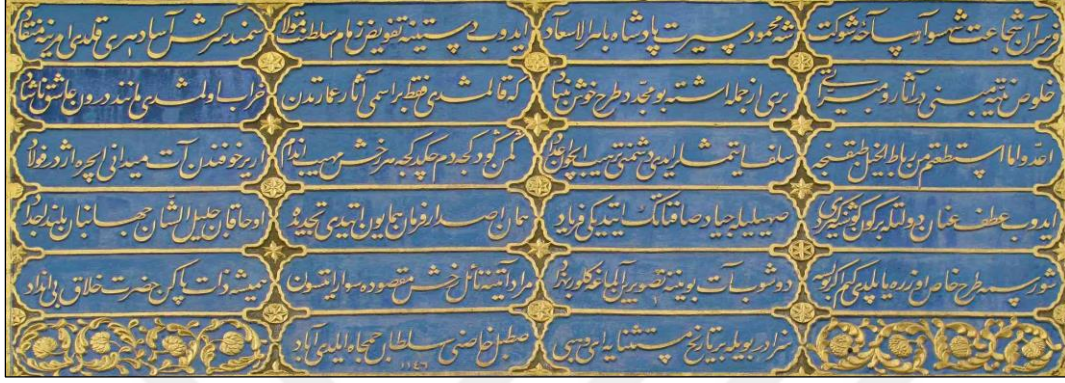 شجاعت شهسوار ساحهٔ شوکت
شه محمود سیرت پادشاه
ایدوب دست تفویض زمام سلطنت مولا
سمند سرکش آسا دهری قلدی امرینه منقاد
خلوص نیتنه مبنی در آثار و مبراتی
بری از جمله اشته بو مجدد طرح خوش بنیاد
که قالمشدی فقط بر اسمی آثار عمارتدن
خراب اولمشدی مانند درون عاشق ناشاد
اعدوا ما استطعتم من رباط الخیل طبقنجه
سلف ایتمش ایدی دشمنی ترهیب ایچون اعداد
دم چکدکجه هر رخش مهیب اندام
اریر خوفندن آت میدانی ایچره اژدر فولاد
ایدوب عطف عنان دولتله بر کون
صهیلیله جیاد صافناتک ایتدیکی فریاد
همان اصدار فرمان همایون ایتدی تجدیده
او خاقان جلیل الشان جهانبان بلند اجداد
شو رسمه طرح خاص اوزره یاپلدی کم اکر کورسه
دوشوب آت بوینینه تصویرین آلماغه کلور بهزاد
مراد آتینه نائل رخش مقصوده سوار ایتسون
همیشه ذات پاکن حضرت خلاق بی انداد
سزادر بویله بر تاریخ مستثنایه ای وهبی
صطبل خاصنی سلطان جمجاه ایلدی آباد
١١٤٦